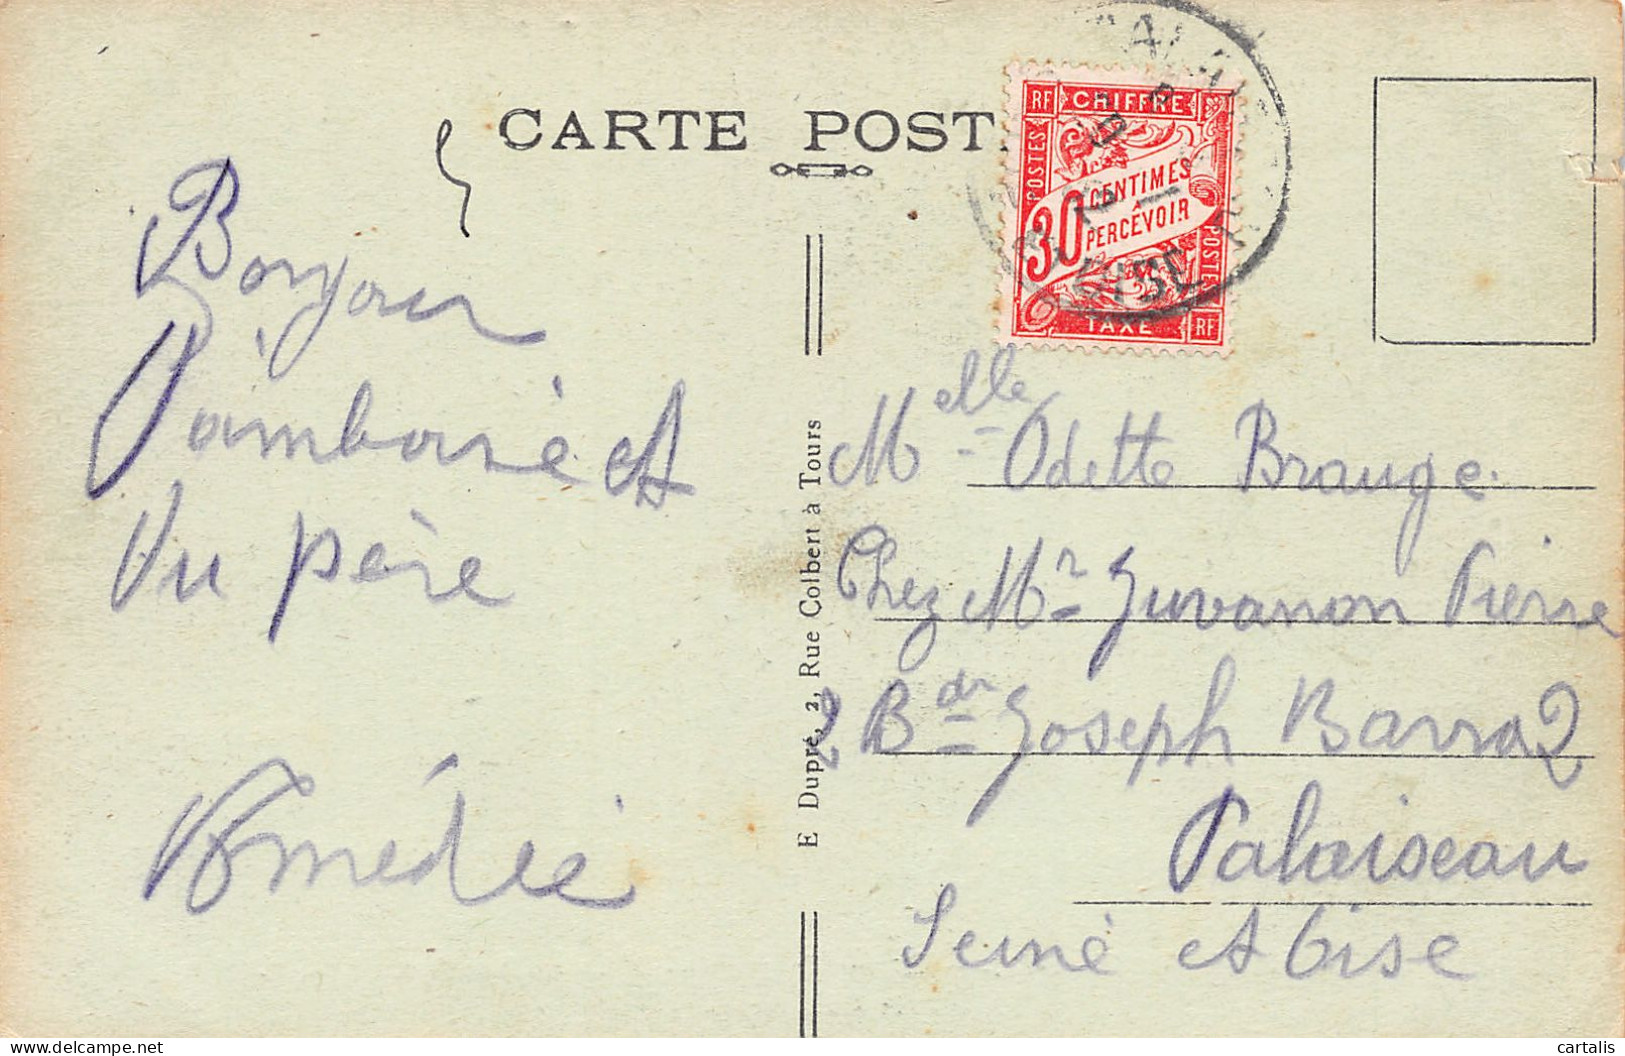 CARTE POST
RF CHIFFRE
POSTES
30 CENTIMES
A
PERCEVOIR
POSTES
TAXE RF
Bonjour
d'amboise et
du père
Amédée
E Dupré, 2, Rue Colbert à Tours
Melle Odette Brauge
Chez Mr Guvanon Pierre
2 Bd Joseph Barra 2
Palaiseau
Seine et Oise
cartalis